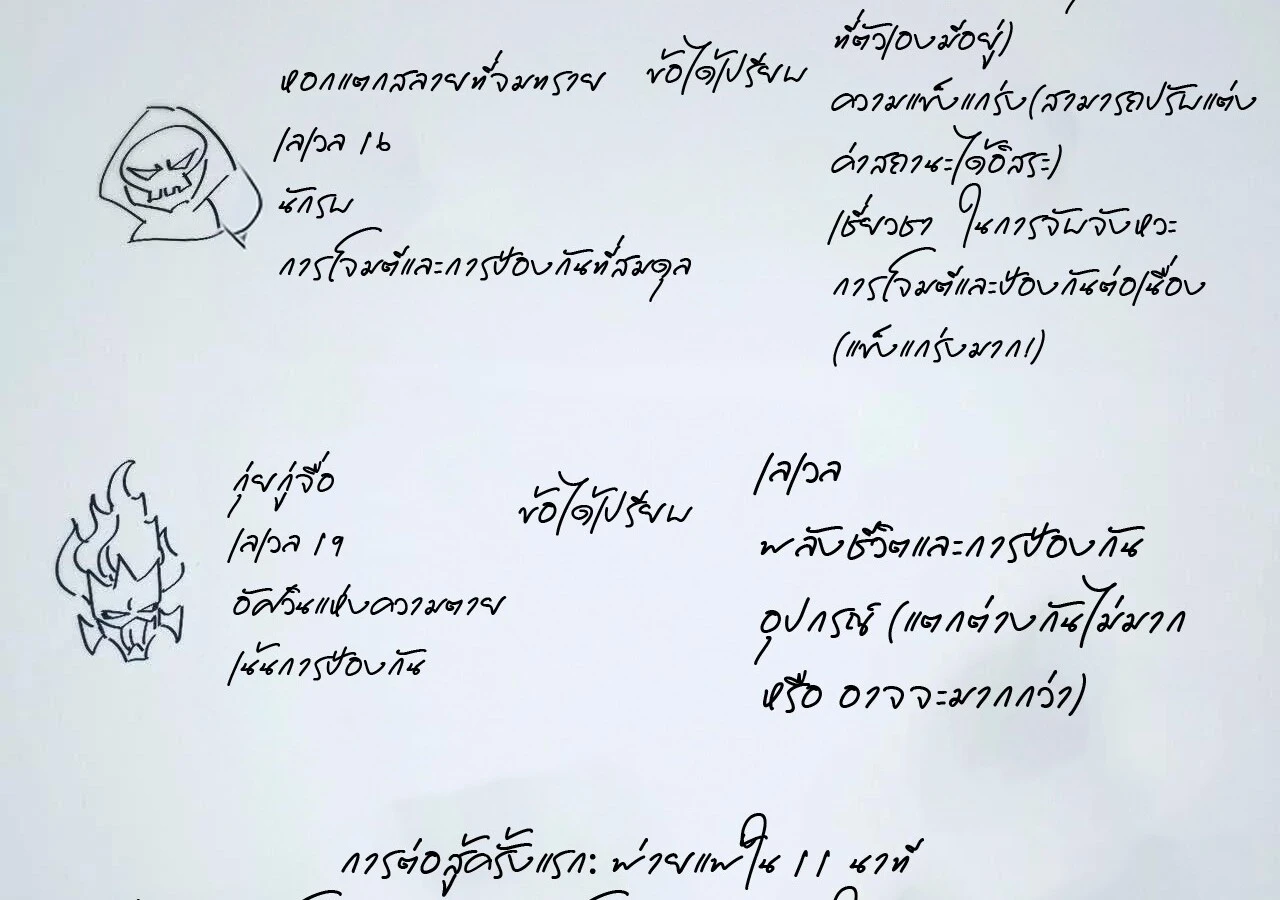 หอกแตกสลายที่จมทราย
เลเวล 16
นักรบ
การโจมตีและการป้องกันที่สมดุล
ข้อได้เปรียบ
ที่ตัวเองมีอยู่)
ความแข็งแกร่ง(สามารถปรับแต่ง
ค่าสถานะได้อิสระ)
เชี่ยวชา ในการจับจังหวะ
การโจมตีและป้องกันต่อเนื่อง
(แข็งแกร่งมาก!)
กุ่ยกู่จื่อ
เลเวล 19
อัศวินแห่งความตาย
เน้นการป้องกัน
ข้อได้เปรียบ
เลเวล
พลังชีวิตและการป้องกัน
อุปกรณ์ (แตกต่างกันไม่มาก
หรือ อาจจะมากกว่า)
การต่อสู้ครั้งแรก: พ่ายแพ้ใน 11 นาที